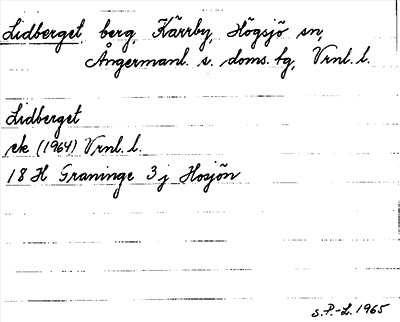 Lidberget, berg, Kärrby, Högsjö sn,
Ångermanl. s. doms. tg, Vrnl. l.
Lidberget
ek (1964) Vrnl. l.
18 H Graninge 3 j Hosjön
s. P.-L. 1965